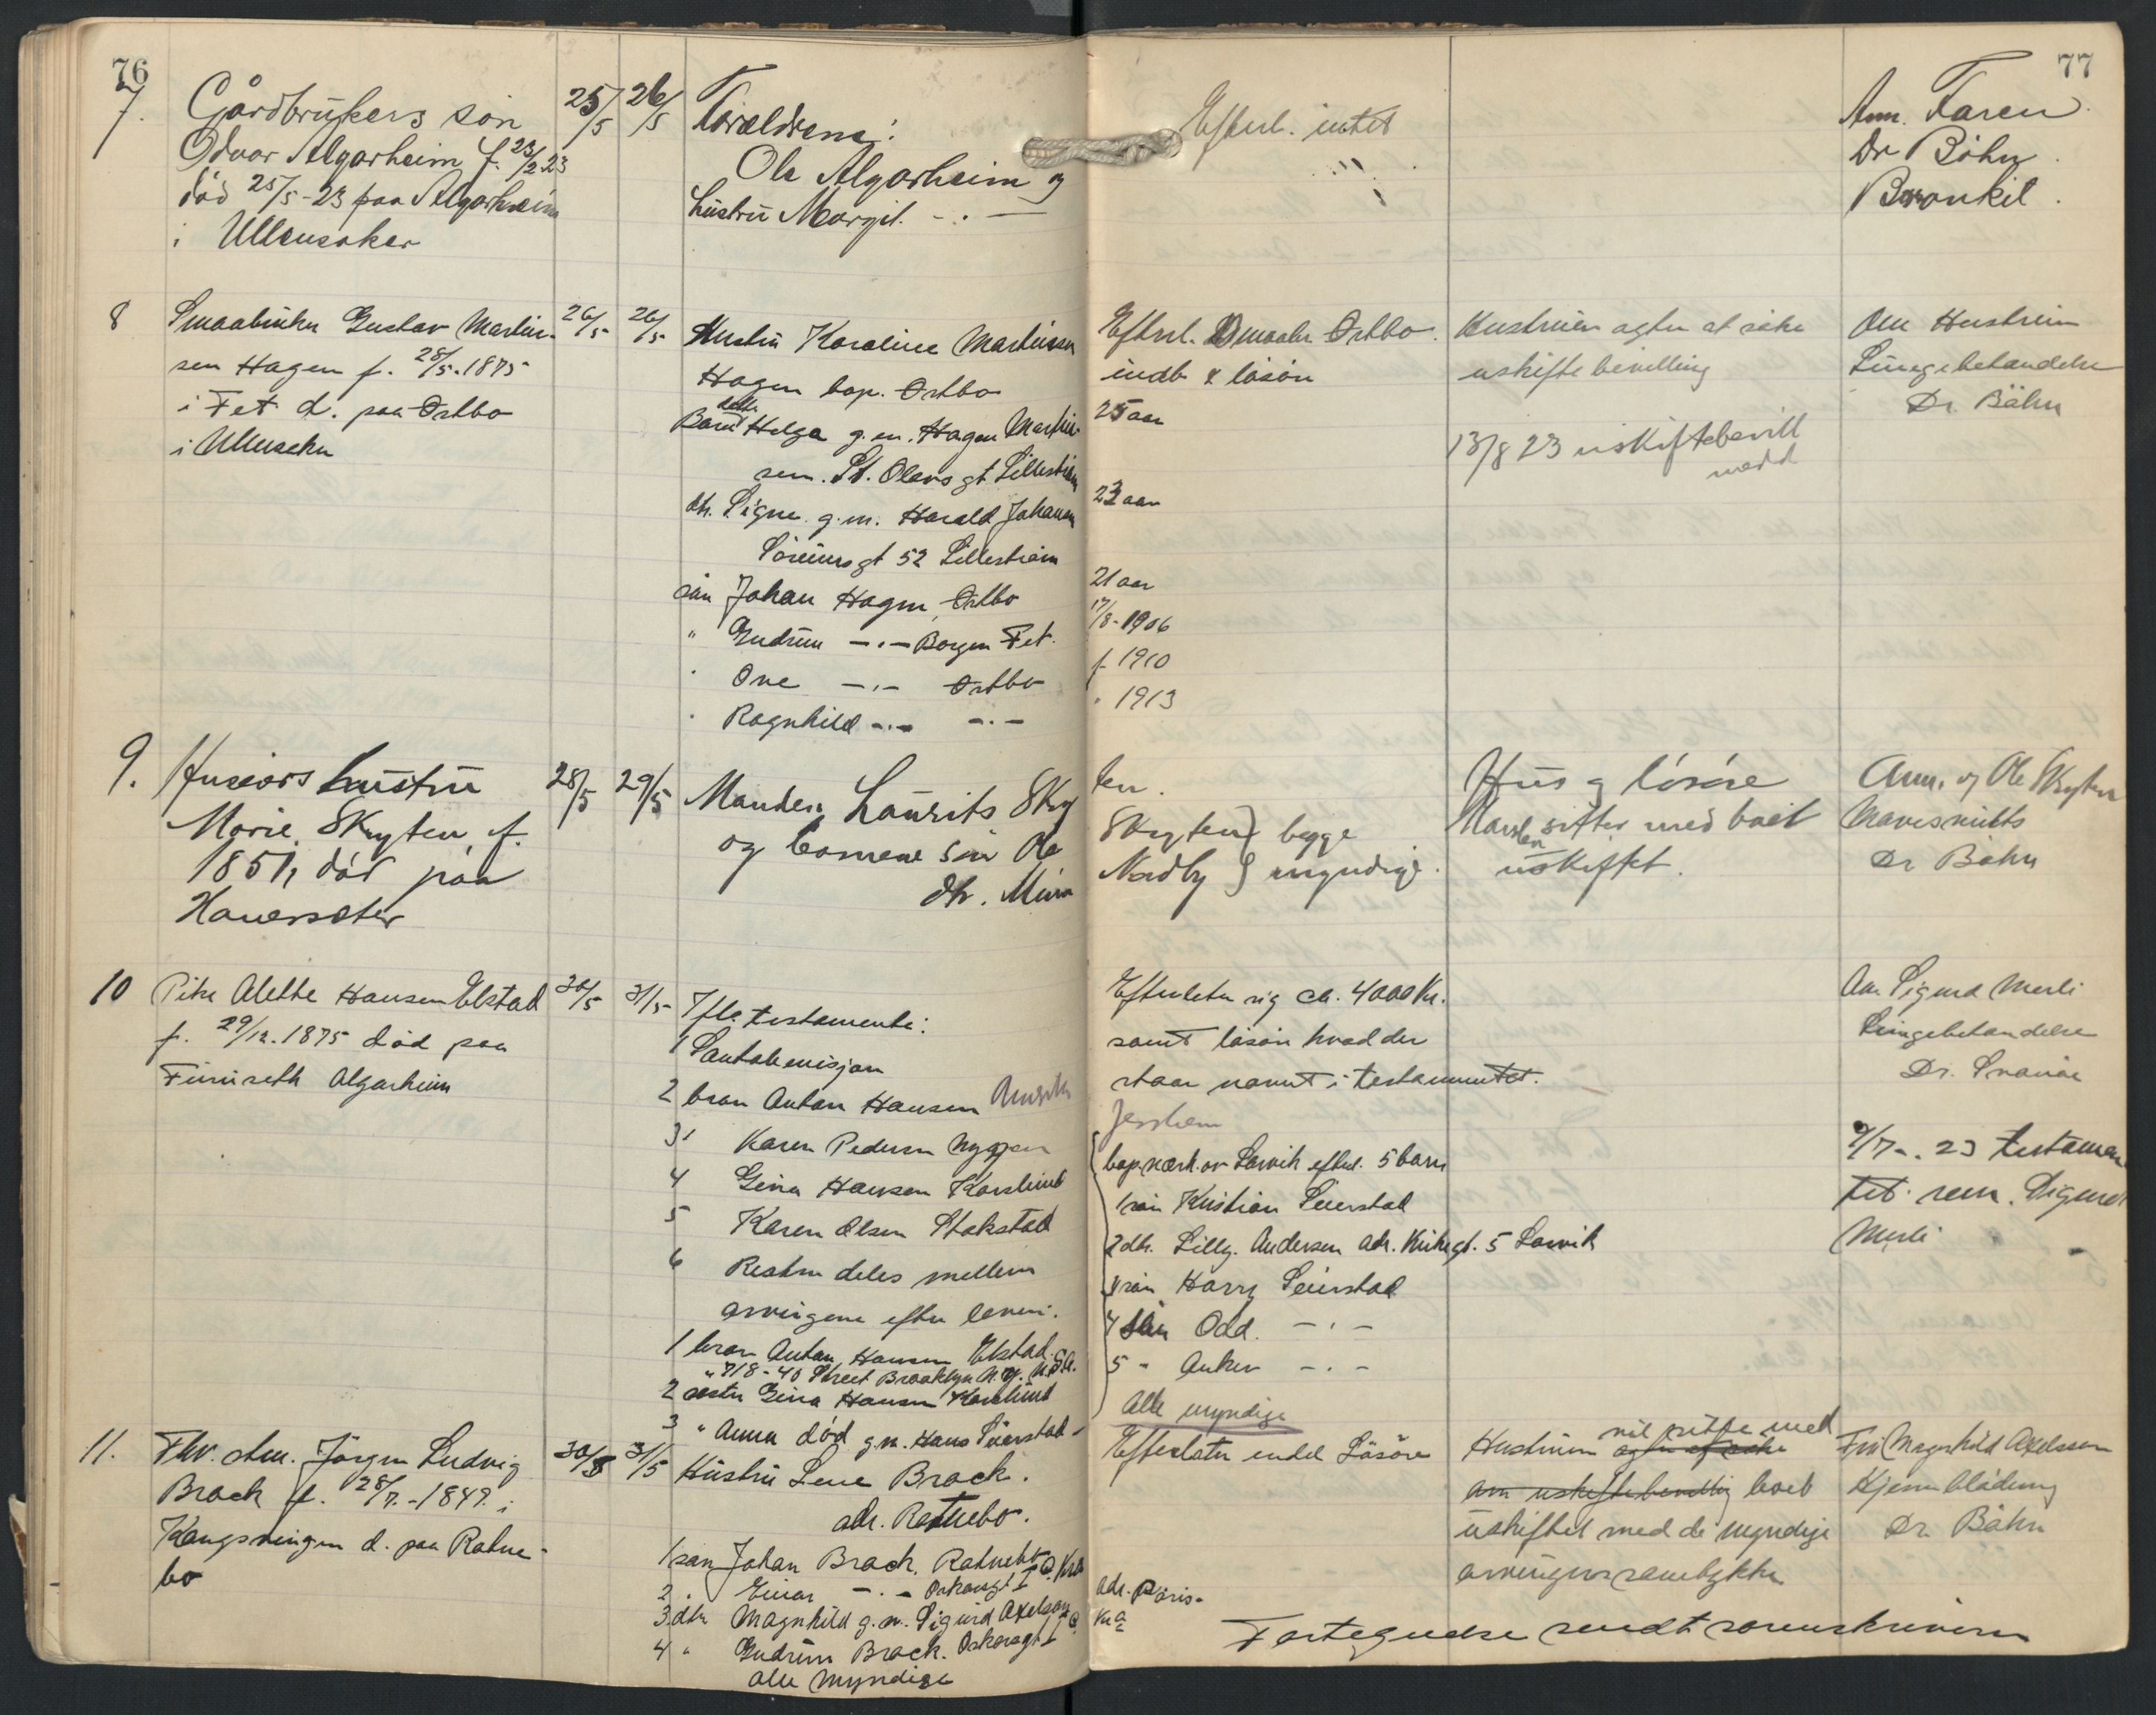 76
7.
Gårdbrukers søn
Odvar Algarheim f. 23/2 23
død 25/5-23 paa Algarheim
i Ullensaker
25/5
26/5
Foreldrene:
Ole Algarheim og
hustru Margit. - . -
Efterl. intet
77
Anm. Faren
Dr Böhn
Bronkit.
8
Smaabruker Gustav Martin-
sen Hagen f. 28/5.1875
i Fet d. paa Østbo
i Ullensaker
26/5
26/5
Hustru Karoline Martinsen
Hagen bop. Østbo
Barn Helga g.m. Hagen Martin-
sen. St. Olavs gt Lillestrøm
dtr. Signe g.m. Harald Johansen
gt 52 Lillestrøm
søn Johan Hagen Østbo
" Gudrun - . - Borgen Fet.
" Ove - . - Østbo
" Ragnhild - . - - . -
Efterl. Østbo
indb & løsøre
25 aar
23 aar
21 aar
17/8-1906
f. 1910
" 1913
Hustruen agter at søke
uskiftebevilling
13/8 23 uskiftebevill
medd
Am Hustruen
Lungebetændelse
Dr. Böhn
9.
Husejers hustru
Marie Skryten f.
1851, død paa
Hauersæter
28/5
29/5
Manden Laurits Skry
ten.
og barnene søn Ole
Skryten } begge
dtr. Mina
Nordby } myndige.
Hus og løsøre
Manden sitter med boet
uskiftet.
Anm. og Ole Skryten
Dr Böhn
10
Pike Alette Hansen Elstad
f. 29/12.1875 død paa
Furuseth Algarheim
30/5
31/5
Ifla testamente:
1 Santalmisjon
2 bror Anton Hansen Amerika
3 " Karen Pedersen Nygaen
4 Gina Hansen Karslund
5 Karen Olsen Stokstad
6 Resten deles mellem
arvingene efter loven:
1 bror Anton Hansen Elstad
" 718-40 Street Brooklyn N.Y. U.S.A.
2 søster Gina Hansen Karslund
3 " Anna død g.m. Hans Seierstad
Efterlater sig ca. 4000 Kr.
samt løsøre hvad der
staar nævnt i testamentet.
Jessheim
bop. nærh. av Larvik efterl. 5 barn
1 søn Kristian Seierstad
2 dtr. Lilly Andersen adr. Kirkegt. 5 Larvik
3 søn Harry Seierstad
4 søn Odd. - . -
5 " Anker - . -
Alle myndige
An. Sigurd Merli
Lungebetændelse
Dr.
9/7-. 23 testamen
tet sen. Sigurd
Merli
11.
Fhv. Jørgen Ludvig
Brock f. 28/7.-1849. i
Kongsvingen d. paa Ratne-
bo
30/5
31/5
Hustru Lene Brock.
adr. Ratnebo.
1 søn Johan Brock. Ratnebo
2 " Einar - . - Oskarsgt
3. dtr Magnhild g.m. Sigurd Axelson
4 " Gudrun Brock. Oskarsgt
alle myndige
Efterlater endel Løsøre
adr. Paris-
Kra
Hustruen agter at søke vil sitte med
om uskiftebevilling boet
uskiftet med de myndige
arvingers samtykke
Fortegnelse sendt sorenskriveren
Fru Magnhild Axelsson
Hjerneblødning
Dr. Böhn